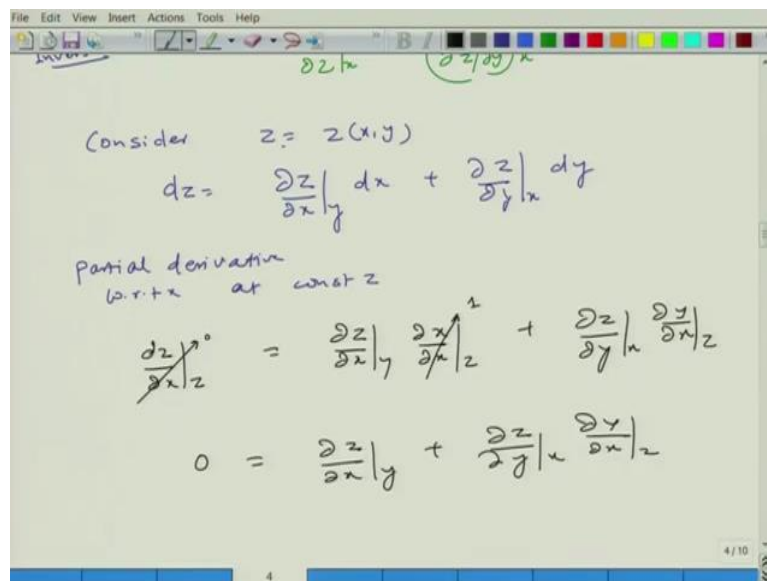 File Edit View Insert Actions Tools Help
∂z|x (∂z/∂y)x
Consider z = z(x,y)
dz = ∂z/∂x|y dx + ∂z/∂y|x dy
Partial derivative
w.r.t x at const z
dz/∂x|z 0 = ∂z/∂x|y ∂x/∂x|z 1 + ∂z/∂y|x ∂y/∂x|z
0 = ∂z/∂x|y + ∂z/∂y|x ∂y/∂x|z
4/10
4